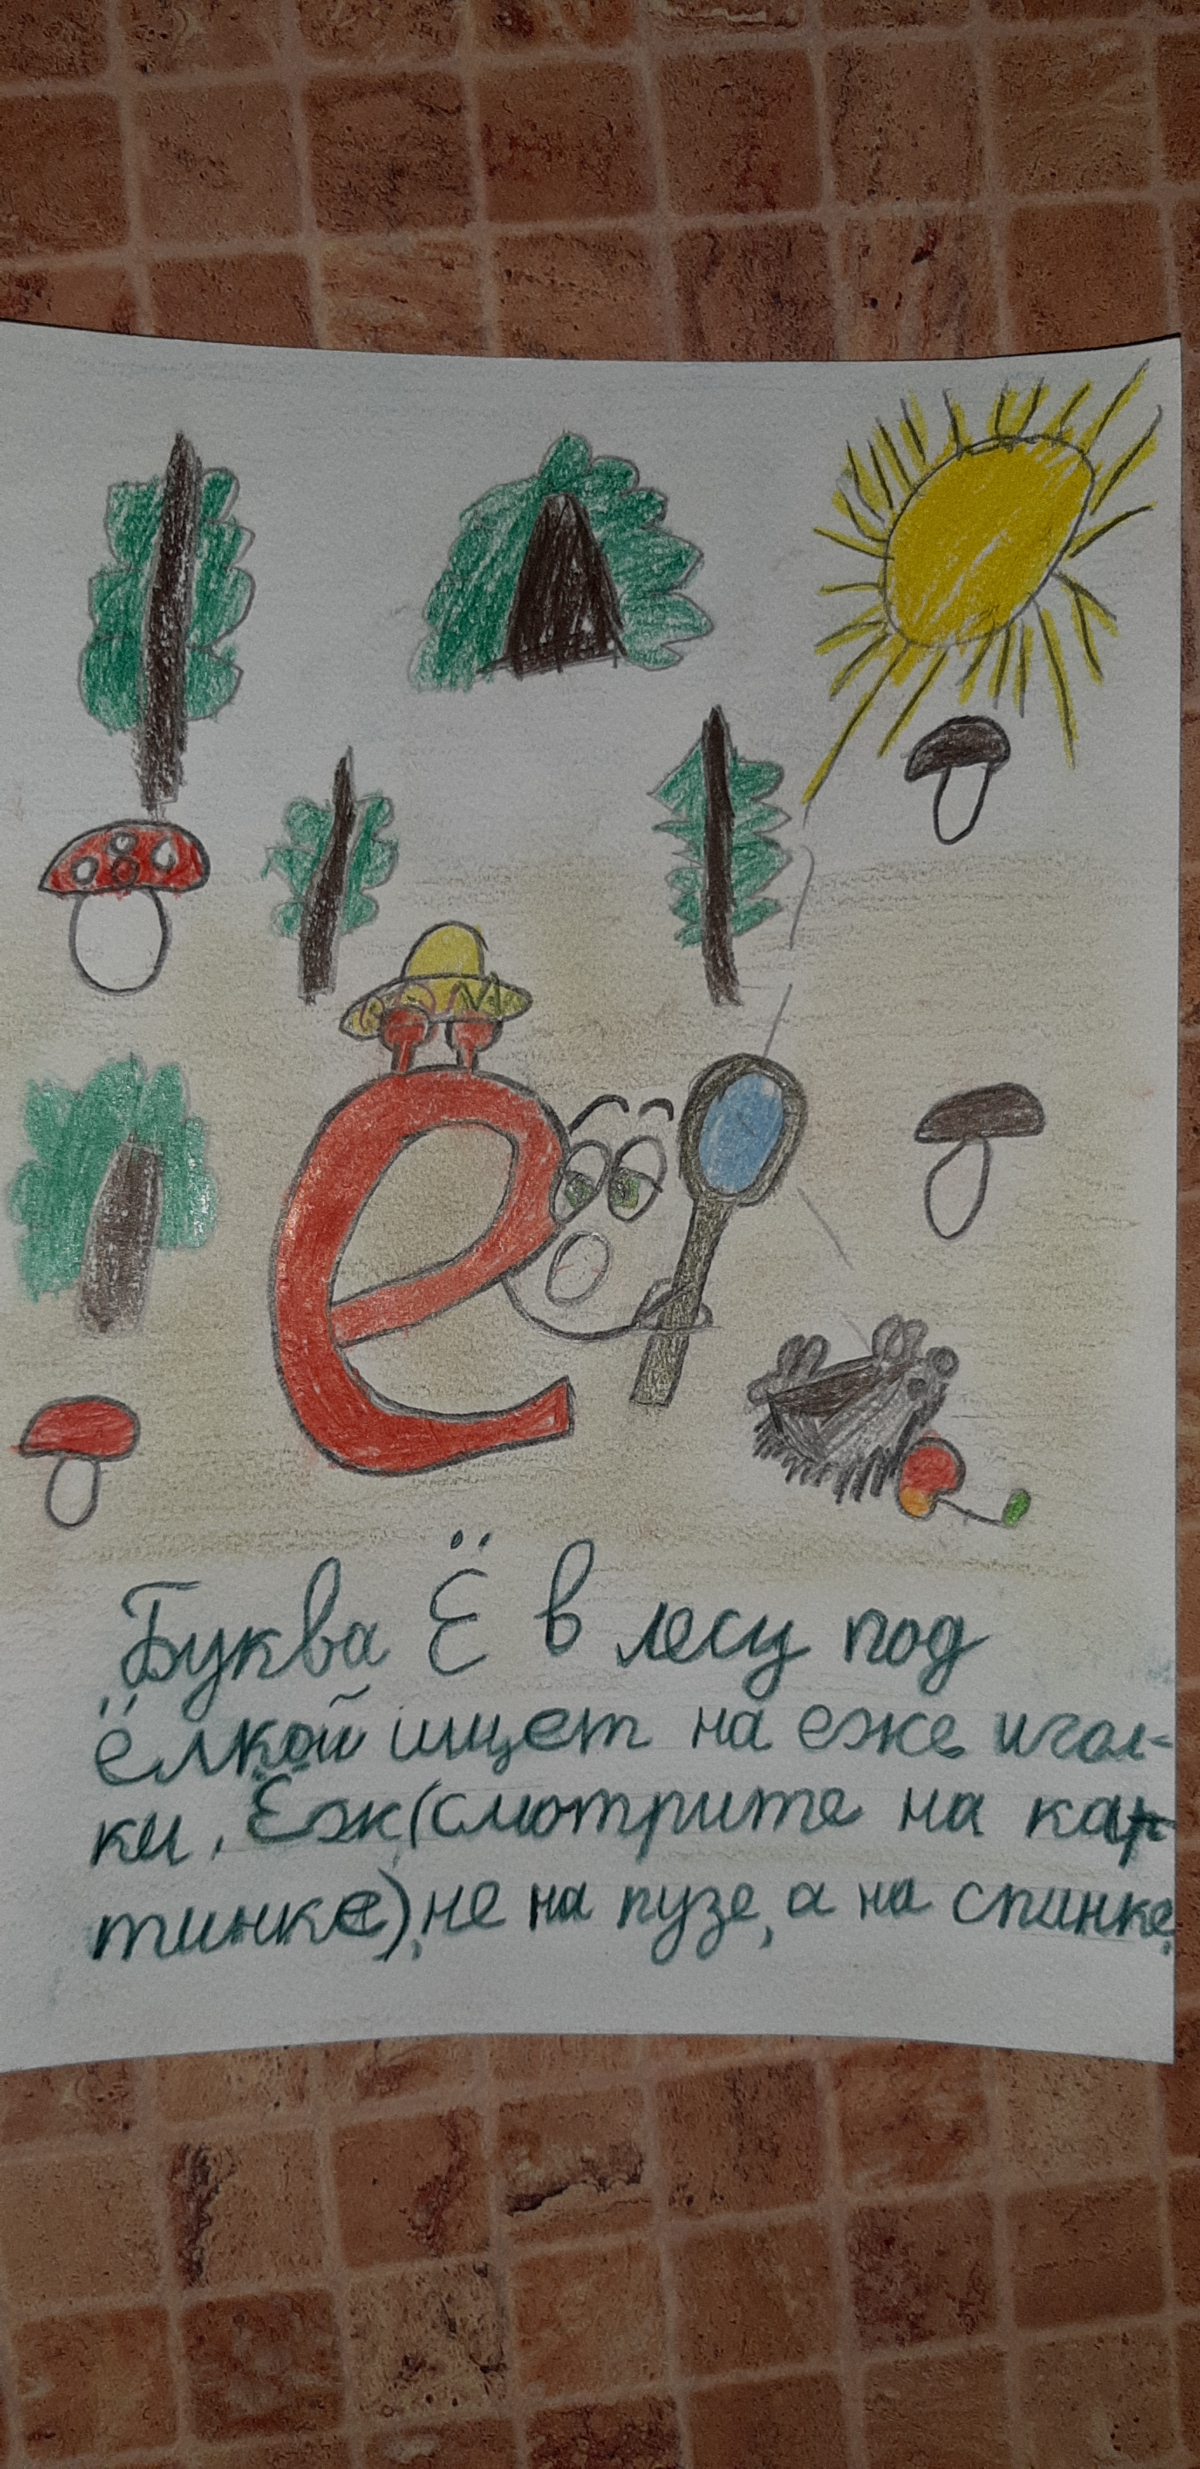 Буква Ё в лесу под
ёлкой ищет на еже игол-
ки. Ёж (смотрите на кар-
тинке), не на пузе, а на спинке.